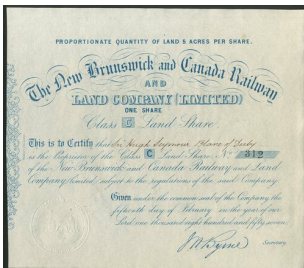 PROPORTIONATE QUANTITY OF LAND 5 ACRES PER SHARE.
The New Brunswick and Canada Railway
AND
LAND COMPANY (LIMITED)
ONE SHARE
Class C Land Share.
This is to Certify that Sir Hugh Seymour
is the Proprietor of the Class C Land Share No 312
of the New Brunswick and Canada Railway and Land
Company limited subject to the regulations of the said Company.
Given under the common seal of the Company, the
fifteenth day of February in the year of our
Lord one thousand eight hundred and fifty seven.
Secretary